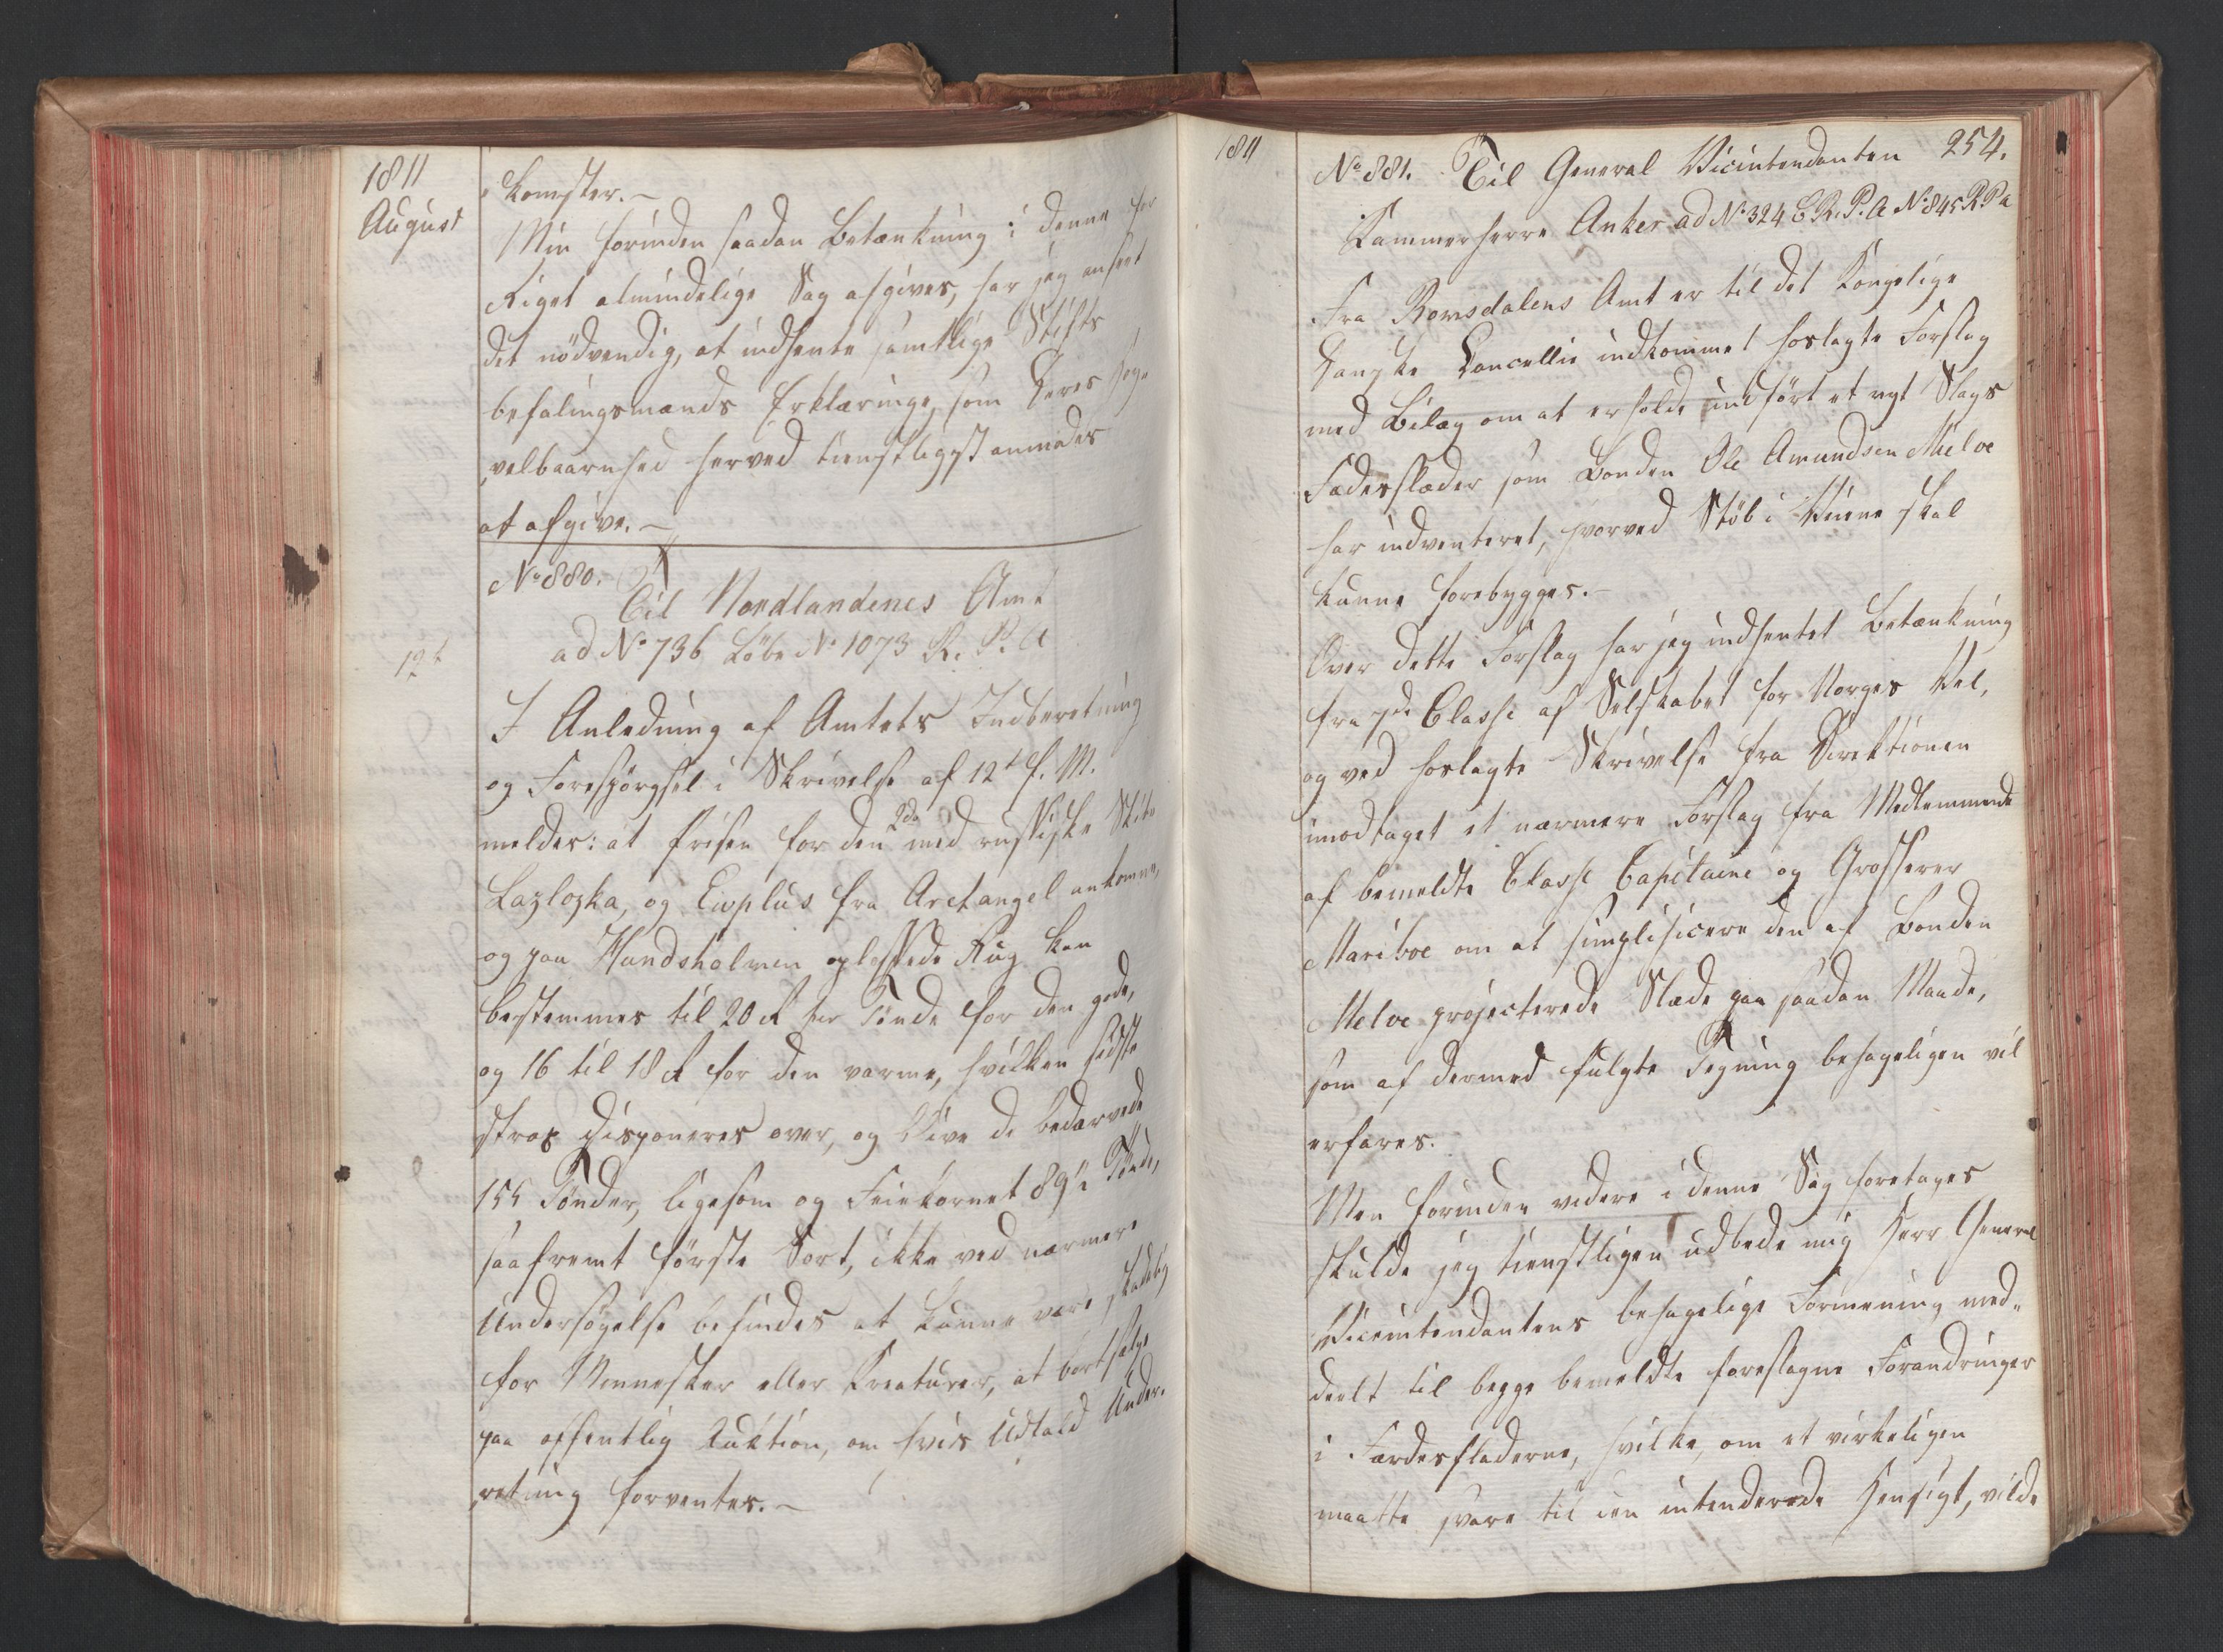 1811
August
komster. –
Men forinden saadan Betænkning i denne for
Riget almindelige Sag afgives, har jeg anseet
det nödvendig, at indhente samtlige Stifts
befalingsmænds Erklæringe, som Deres Høy¬
velbaarenhed herved tienstligst anmodes
at afgive. –
No 880.
Til Nordlandenes Amt
ad No 736 Löbe No 1073 R. P. A
12t
I Anledning af Amtets Indberetning
og Forespörgsel i Skrivelse af 12t f. M.
meldes: at Prisen for den 2de med russiske Skibe
Lazlozka, og Euplus fra Archangel ankomne,
og paa Hundsholmen oplossede Rug kan
bestemmes til 20 rd per Tönde for den gode,
og 16 til 18 rd for den varme, hvilken sidste
strax disponeres over, og blive de bedærvede
155 Tönder, ligesom og Feiekornet 89½ Tönde,
saafremt förste Sort, ikke ved nærmere
Undersögelse befindes at kunne være skadelig
for Mennesker eller Kreaturer, at bortsælge
paa offentlig Auktion, om hvis Udfald Under¬
retning forventes. –
1811
254.
No 881. Til General Vicintendanten
Kammerherre Anker ad No 324 C. R. P. A No 845 R P a
Fra Romsdalens Amt er til det Kongelige
Danske Cancellie indkommet hoslagte Forslag
med Bilag om at erholde indfört et nyt Slags
Fædesslæder som Bonden Ole Amundsen Mielve
har indventeret, hvorved Stöb i Veiene skal
kunne forebygges. –
Over dette Forslag har jeg indhentet Betænkning
fra 7de Classe af Selskabet for Norges Vel,
og ved hoslagte Skrivelse fra Direktionen
imodtaget et nærmere Forslag fra Medlemmende
af bemeldte Classe Capitaine og Grosserer
Mariboe om at simplificere den af Bonden
Melve projecterede Slæde paa saadan Maade,
som af dermed fulgte Tegning behageligen vil
erfares.
Men forinden videre i denne Sag foretages
skulde jeg tienstligen udbede mig Herr General
Vicintendantens behagelige Formening med¬
deelt til begge bemeldte foreslagne Forandringer
i Færdesslæderne, hvilke, om et virkeligen
maatte svare til den intenderede Hensigt, vilde